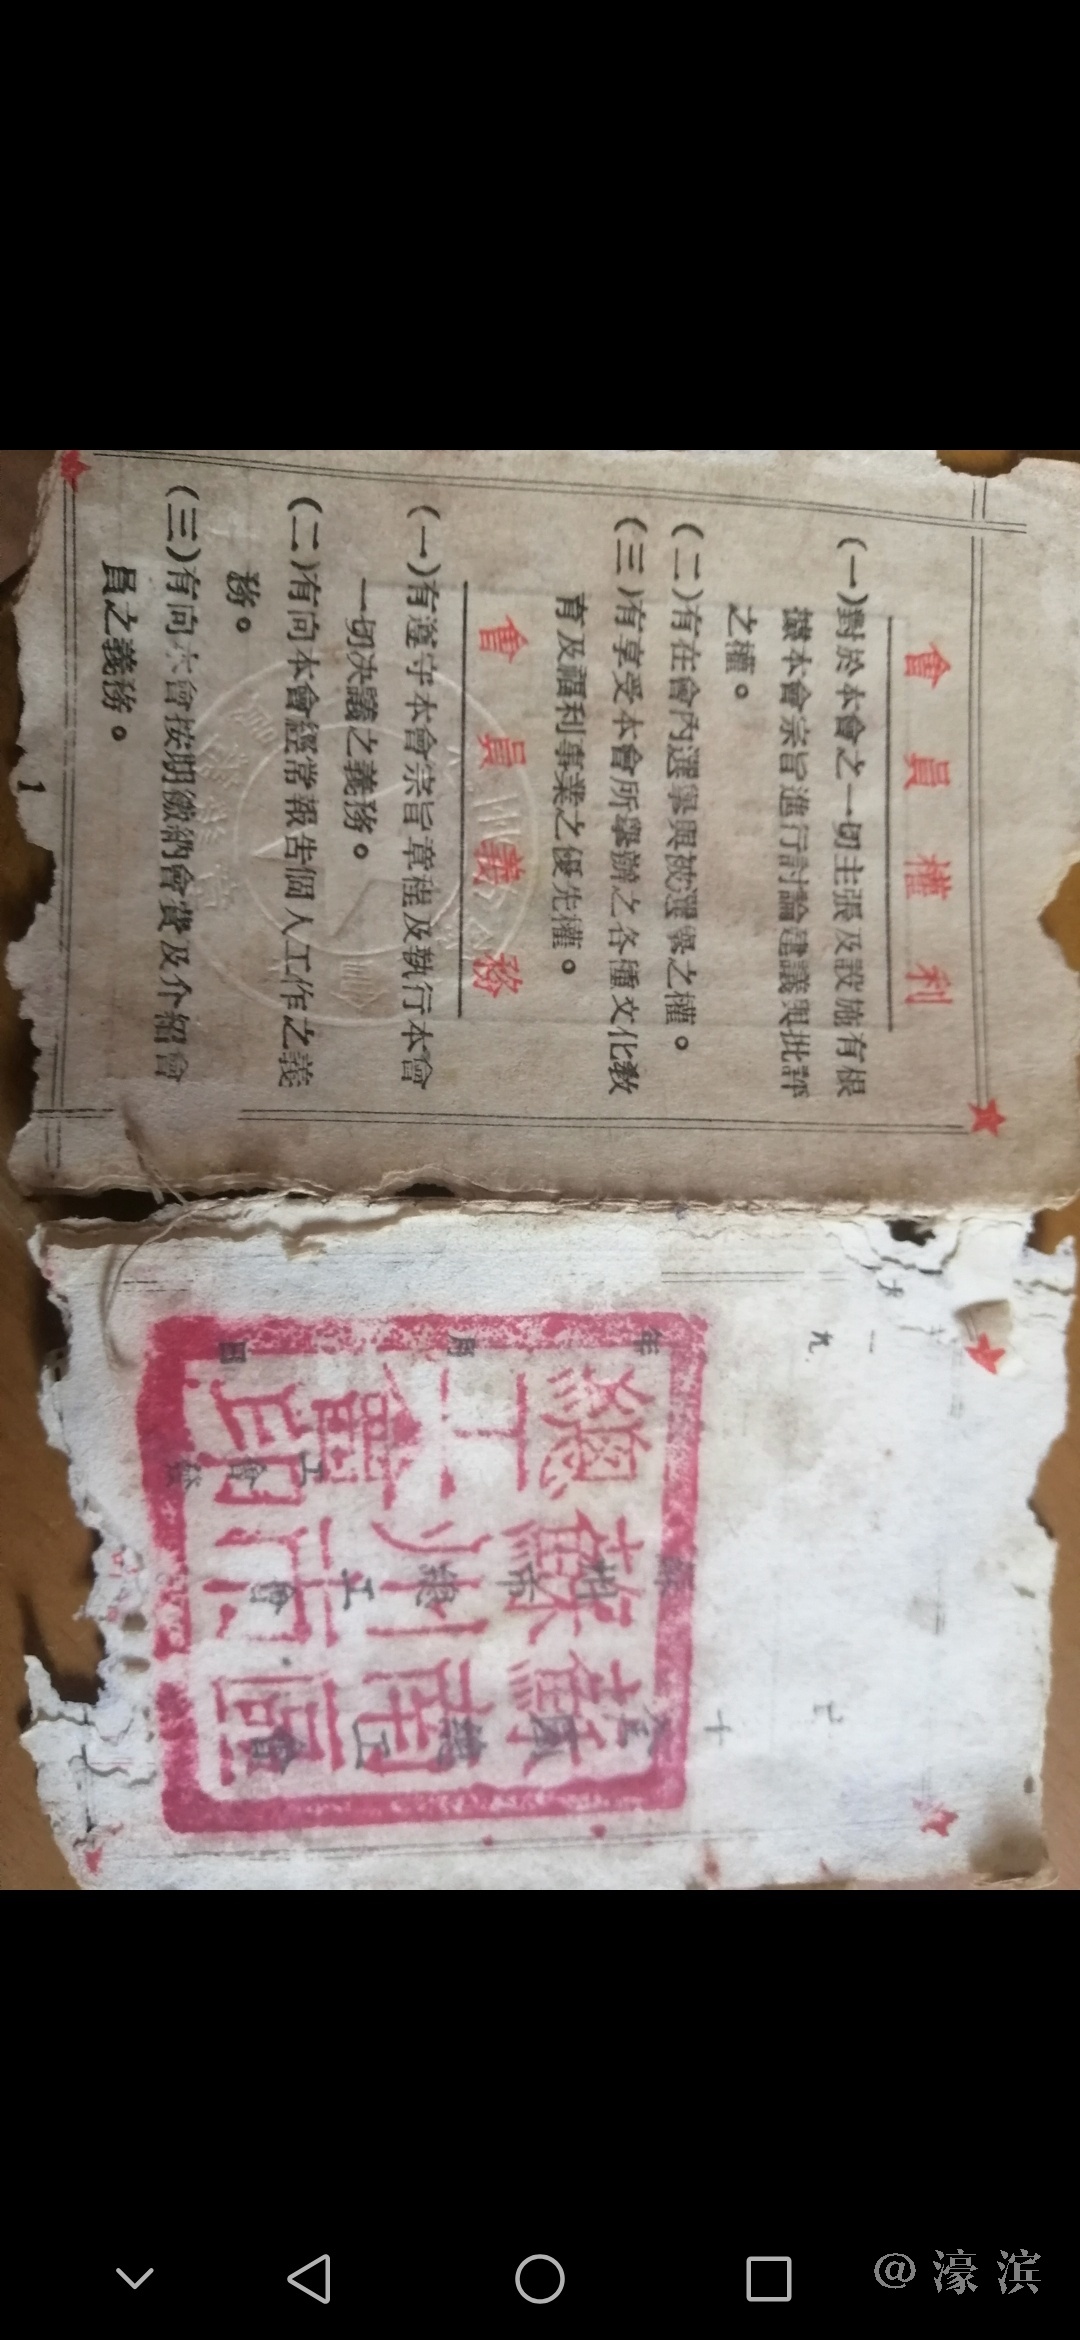 會員權利
(一)對於本會之一切主張及設施有根
據本會宗旨進行討論建議與批評
之權。
(二)有在會內選舉與被選舉之權。
(三)有享受本會所舉辦之各種文化教
育及福利事業之優先權。
會員義務
(一)有遵守本會宗旨章程及執行本會
一切決議之義務。
(二)有向本會經常報告個人工作之義
務。
(三)有向本會按期繳納會費及介紹會
員之義務。
1
總工會
蘇州市總工會
工會發
一九 年 月
蘇南區
蘇州市
總工會印
@濠滨